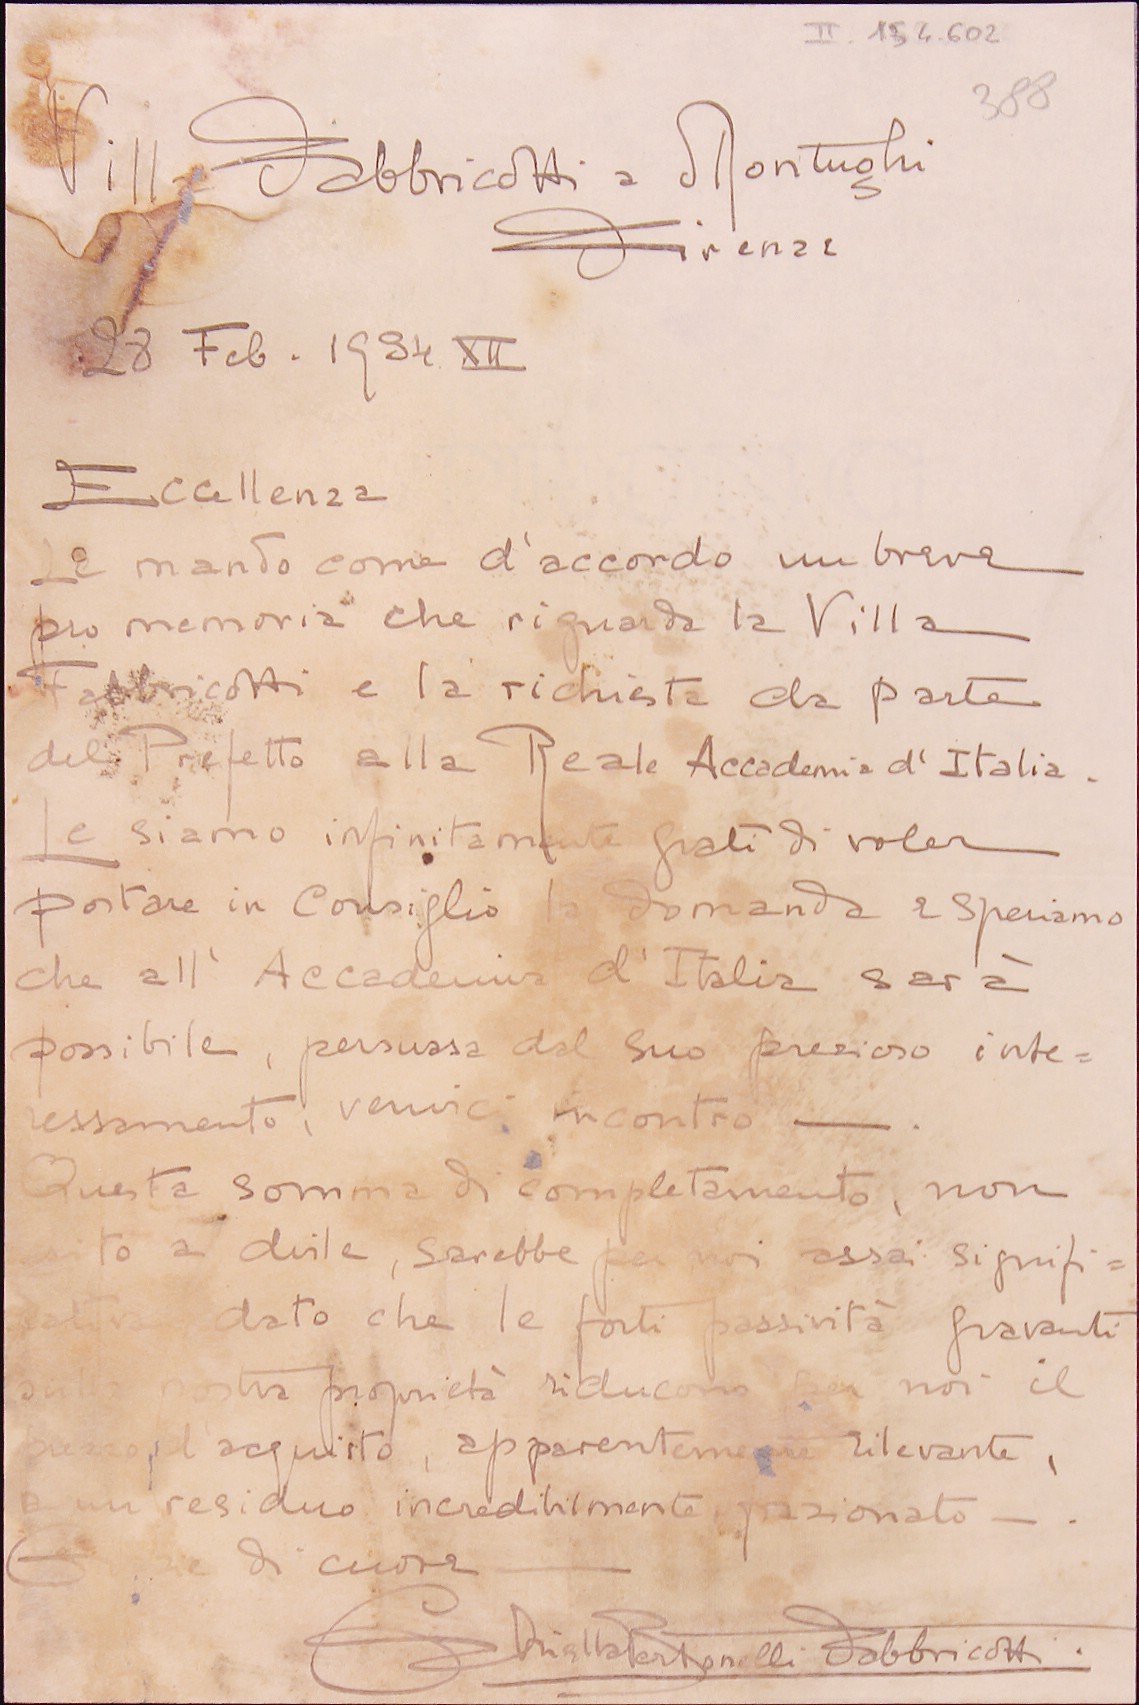 II. 154.602
388
Villa Fabbricotti a Montughi
Firenze
28 Feb. 1934 XII
Eccellenza
Le mando come d'accordo un breve
pro memoria che riguarda la Villa
Fabbricotti e la richiesta da parte
del Prefetto alla Reale Accademia d'Italia.
Le siamo infinitamente grati di voler
portare in Consiglio la domanda e speriamo
che all'Accademia d'Italia sarà
possibile, persuasa dal suo prezioso inte=
ressamento, venirci incontro —.
Questa somma di completamento, non
a dirle, sarebbe per noi assai signifi=
cativa dato che le forti passività gravanti
sulla nostra proprietà riducono per noi il
prezzo d'acquisto, apparentemente rilevante,
a un residuo incredibilmente —.
Grazie di cuore —
Fabbricotti.